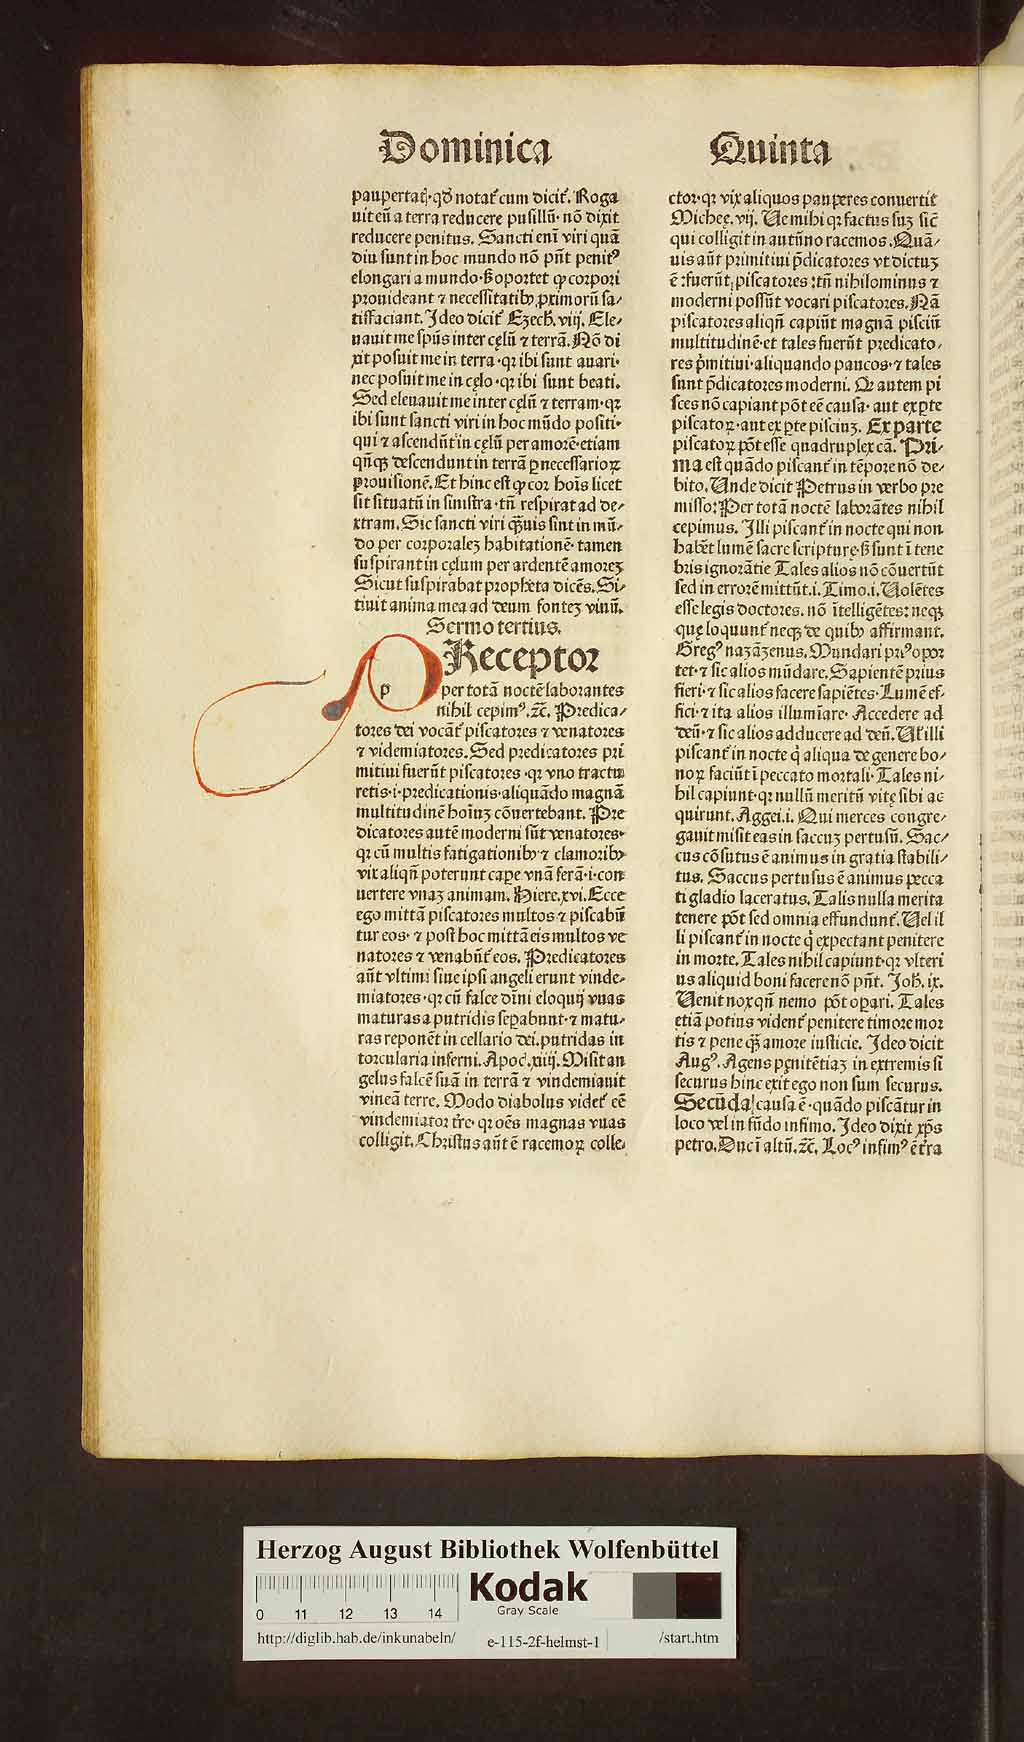 Dominica
paupertatꝭ·qď notat᷑ cum dicit᷑. Roga
uit eū a terra reducere pusillū· nō dixit
reducere penitus. Sancti eni viri quā
diu sunt in hoc mundo nō pñt penitꝰ
elongari a mundo·ß oportet ꝙ corpori
prouideant ⁊ necessitatibꝫ ꝓximorū sa/
tisfaciant. Ideo dicit᷑ Ezech. viij. Ele/
uauit me spūs inter cęlū ⁊ terrā. Nō di
xit posuit me in terra·qꝛ ibi sunt auari·
nec posuit me in cęlo·qꝛ ibi sunt beati.
Sed eleuauit me inter cęlū ⁊ terram·qꝛ
ibi sunt sancti viri in hoc mūdo positi·
qui ⁊ ascendūt in cęlū per amorē·etiam
qñqꝫ descendunt in terrā ꝓ necessarioꝝ
prouisionē. Et hinc est ꝙ cor hoīs licet
sit situatū in sinistra·tñ respirat ad de/
xtram. Sic sancti viri qᷓuis sint in mū/
do per corporaleꝫ habitationē· tamen
suspirant in cęlum per ardentē amoreꝫ
Sicut suspirabat propheta dicēs. Si/
tiuit anima mea ad deum fonteꝫ viuū.
Sermo tertius.
p Receptor
per totā noctē laborantes
nihil cepimꝰ.⁊c̄. Predica/
tores dei vocāt᷑ piscatores ⁊ venatores
⁊ videmiatores. Sed predicatores pri
mitiui fuerūt piscatores·qꝛ vno tractu
retis·i·predicationis·aliquādo magnā
multitudinē hoīuꝫ cōuertebant. Pre
dicatores autē moderni sūt venatores·
qꝛ cū multis fatigationibꝫ ⁊ clamoribꝫ
vix aliqñ poterunt caꝑe vnā ferā·i·con
uertere vnaꝫ animam. Hiere.xvi. Ecce
ego mittā piscatores multos ⁊ piscabū
tur eos·⁊ post hoc mittā eis multos ve
natores ⁊ venabūt᷑ eos. Predicatores
aūt vltimi siue ipsi angeli erunt vinde/
miatores·qꝛ cū falce dīni eloquij vuas
maturas a putridis seꝑabunt·⁊ matu/
ras reponēt in cellario dei.putridas in
torcularia inferni. Apoc.xiiij. Misit an
gelus falcē suā in terrā ⁊ vindemiauit
vineā terre. Modo diabolus videt᷑ eē
vindemiator tr̄e·qꝛ oēs magnas vuas
colligit. Christus aūt ē racemoꝝ colle/
Quinta
ctor·qꝛ vix aliquos pauperes conuertit
Micheę. vij. Ue mihi qꝛ factus suꝫ sic̄
qui colligit in autūno racemos. Quā/
uis aūt primitiui p̄dicatores vt dictuꝫ
ē :fuerūt piscatores :tñ nihilominus ⁊
moderni possūt vocari piscatores. Nā
piscatores aliqñ capiūt magnā pisciū
multitudinē·et tales fuerūt predicato/
res p̄mitiui·aliquando paucos·⁊ tales
sunt p̄dicatores moderni. Q autem pi
sces nō capiant pōt eē causa· aut ex ꝑte
piscatoꝝ·aut ex ꝑte pisciuꝫ. Ex parte
piscatoꝝ pōt esse quadruplex cā. Pri/
ma est quādo piscant᷑ in tēpore nō de/
bito. Unde dicit Petrus in verbo pre
misso: Per totā noctē laborātes nihil
cepimus. Illi piscant᷑ in nocte qui non
habēt lumē sacre scripturę·ß sunt ī tene
bris ignorātie Tales alios nō cōuertūt
sed in errorē mittūt.i.Timo.i. Uolētes
esse legis doctores. nō ītelligētes: neqꝫ
quę loquunt᷑ neqꝫ de quibꝫ affirmant.
Gregꝰ nazāzenus. Mundari priꝰ opor
tet·⁊ sic alios mūdare. Sapientē prius
fieri·⁊ sic alios facere sapiētes·Lumē ef/
fici·⁊ ita alios illumīare· Accedere ad
deū·⁊ sic alios adducere ad deū. Ul̓ illi
piscant᷑ in nocte q̇ aliqua de genere bo/
noꝝ faciūt ī peccato mortali·Tales ni/
hil capiunt·qꝛ nullū meritū vitę sibi ac
quirunt. Aggei.i. Qui merces congre/
gauit misit eas in saccuꝫ pertusū. Sac/
cus cōsutus ē animus in gratia stabili/
tus. Saccus pertusus ē animus pecca
ti gladio laceratus. Talis nulla merita
tenere pōt sed omnia effundunt᷑. Uel il
li piscant᷑ in nocte q̇ expectant penitere
in morte. Tales nihil capiunt·qꝛ vlteri
us aliquid boni facere nō pñt. Joh̄. ix.
Uenit nox qñ nemo pōt oꝑari. Tales
etiā potius vident᷑ penitere timore mor
tis ⁊ pene qᷓ amore iusticie. Ideo dicit
Augꝰ. Agens pęnitētiaꝫ in extremis si
securus hinc exit ego non sum securus.
Secūda causa ē·quādo piscātur in
loco vel in fūdo infimo. Ideo dixit xp̄s
petro. Duc ī altū.⁊c̄. Locꝰ infimꝰ ē tr̄ra
Herzog August Bibliothek Wolfenbüttel
0 11 12 13 14
Kodak
Gray Scale
http://diglib.hab.de/inkunabeln/ e-115-2f-helmst-1 /start.htm